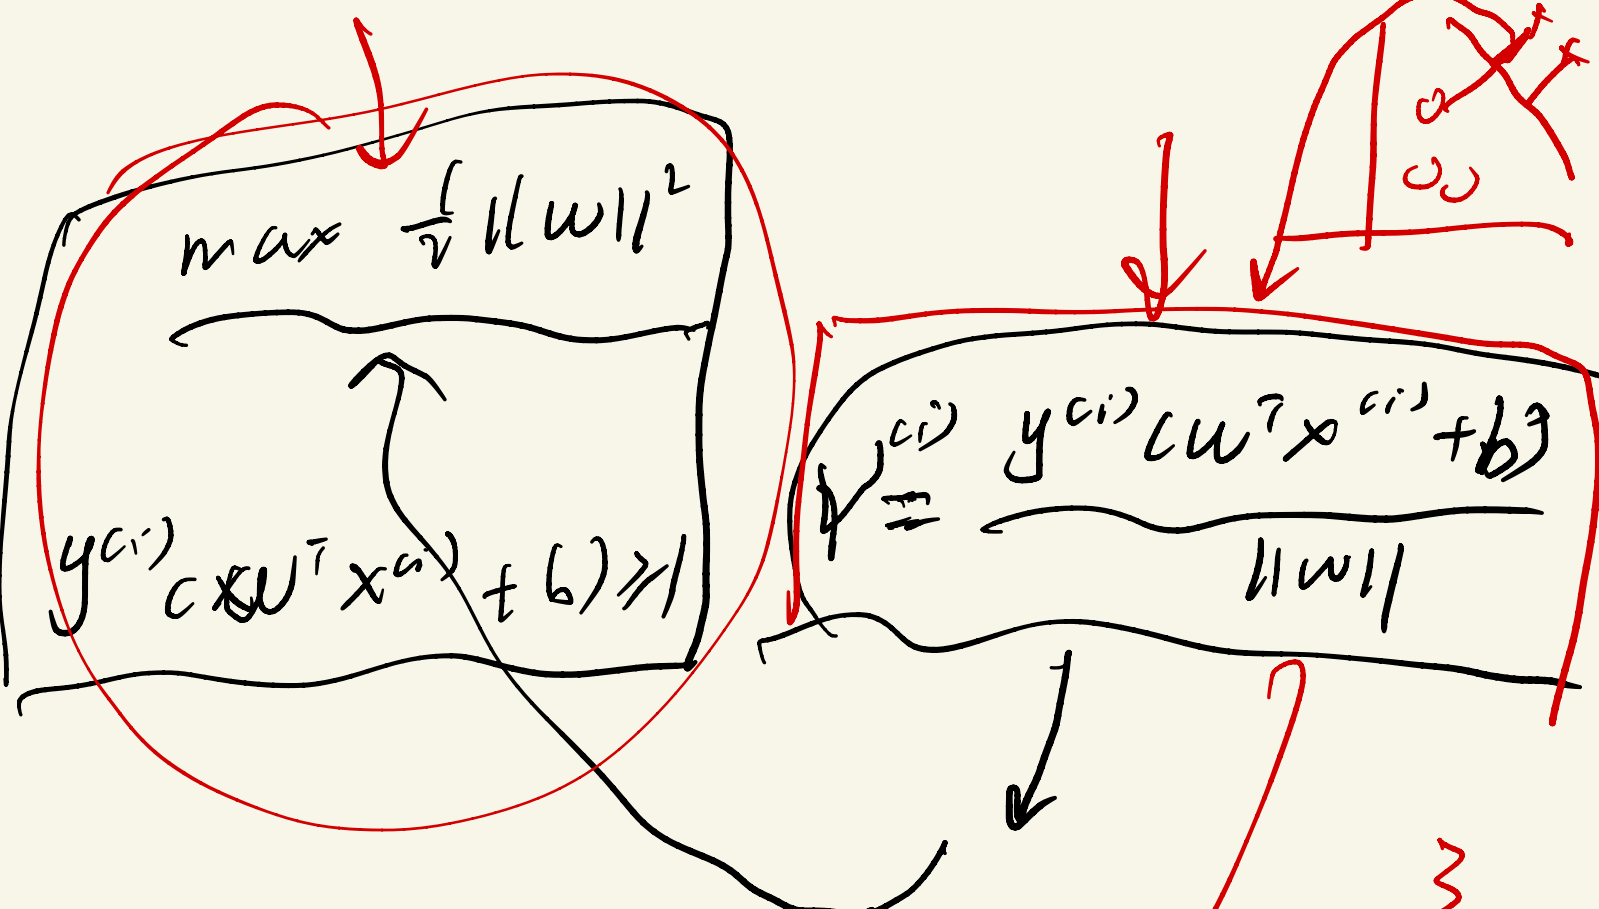 max 1/2 ||w||²
y⁽ⁱ⁾ (wᵀ x⁽ⁱ⁾ + b) ≥ 1
γ⁽ⁱ⁾ = y⁽ⁱ⁾ (wᵀ x⁽ⁱ⁾ + b) / ||w||
3